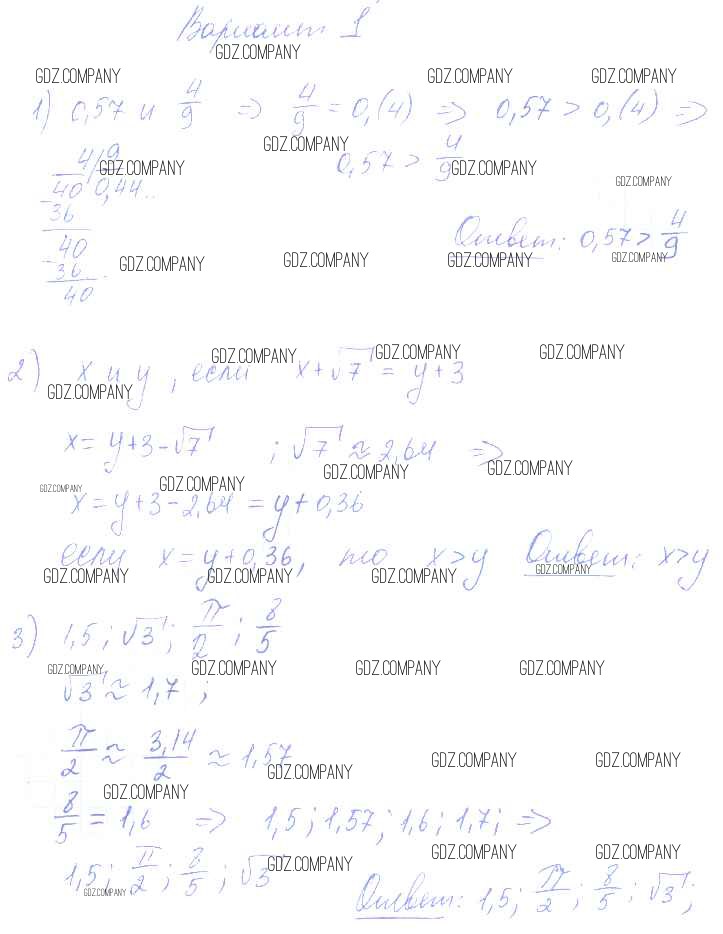 Вариант 1
GDZ.COMPANY
GDZ.COMPANY GDZ.COMPANY GDZ.COMPANY
1) 0,57 и 4/9 => 4/9 = 0,(4) => 0,57 > 0,(4) =>
GDZ.COMPANY
0,57 > 4/9
4 | 9
GDZ.COMPANY GDZ.COMPANY
40 0,44..
GDZ.COMPANY
- 36
Ответ: 0,57 > 4/9
40
GDZ.COMPANY GDZ.COMPANY GDZ.COMPANY GDZ.COMPANY
- 36
40
GDZ.COMPANY GDZ.COMPANY GDZ.COMPANY
2) x и y, если x + √7 = y + 3
GDZ.COMPANY
x = y + 3 - √7 ; √7 ≈ 2,64 =>
GDZ.COMPANY GDZ.COMPANY
GDZ.COMPANY GDZ.COMPANY
x = y + 3 - 2,64 = y + 0,36
если x = y + 0,36, то x > y Ответ: x > y
GDZ.COMPANY GDZ.COMPANY GDZ.COMPANY GDZ.COMPANY
3) 1,5; √3; π/2; 8/5
GDZ.COMPANY GDZ.COMPANY GDZ.COMPANY GDZ.COMPANY
√3 ≈ 1,7 ;
π/2 ≈ 3,14/2 ≈ 1,57
GDZ.COMPANY GDZ.COMPANY GDZ.COMPANY
GDZ.COMPANY
8/5 = 1,6 => 1,5; 1,57; 1,6; 1,7; =>
GDZ.COMPANY GDZ.COMPANY GDZ.COMPANY
1,5; π/2; 8/5; √3
GDZ.COMPANY
Ответ: 1,5; π/2; 8/5; √3;